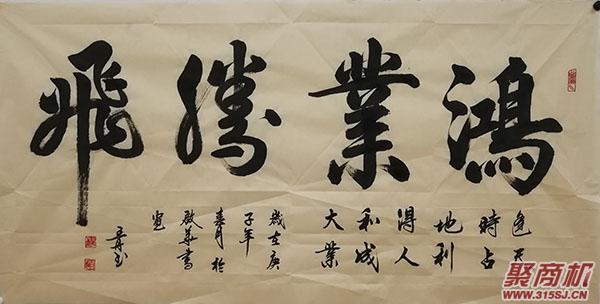 鴻業騰飛
天
時占
地利
得人
和成
大業
歲在庚
子年
春月於
啟華書
聚商机
www.315SJ.CN